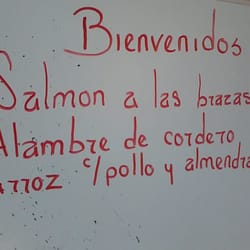 Bienvenidos
Salmon a las brazas
Alambre de cordero
arroz c/pollo y almendra